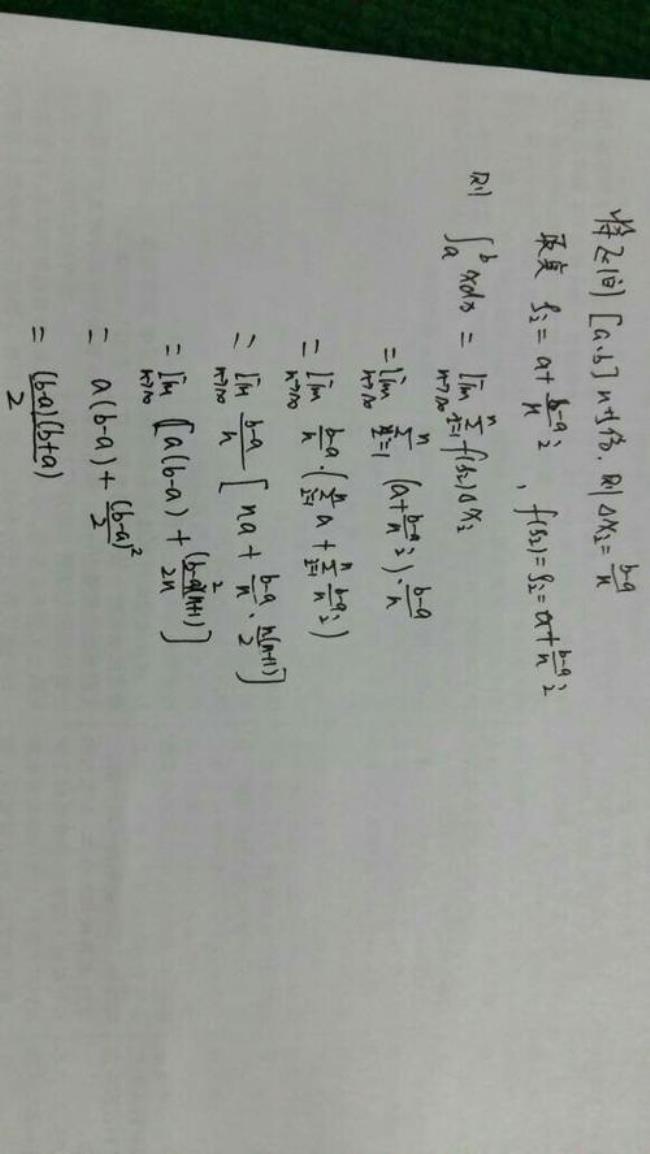 将区间[a,b] n等份. 则 Δx_i = \frac{b-a}{n}
取点 ξ_i = a + \frac{b-a}{n} i , f(ξ_i) = ξ_i = a + \frac{b-a}{n} i
则 \int_a^b x dx = \lim_{n→∞} \sum_{i=1}^{n} f(ξ_i) Δx_i
= \lim_{n→∞} \sum_{i=1}^{n} (a + \frac{b-a}{n} i) · \frac{b-a}{n}
= \lim_{n→∞} \frac{b-a}{n} · (\sum_{i=1}^{n} a + \sum_{i=1}^{n} \frac{b-a}{n} i)
= \lim_{n→∞} \frac{b-a}{n} [na + \frac{b-a}{n} · \frac{n(n+1)}{2}]
= \lim_{n→∞} [a(b-a) + \frac{(b-a)^2(n+1)}{2n}]
= a(b-a) + \frac{(b-a)^2}{2}
= \frac{(b-a)(b+a)}{2}